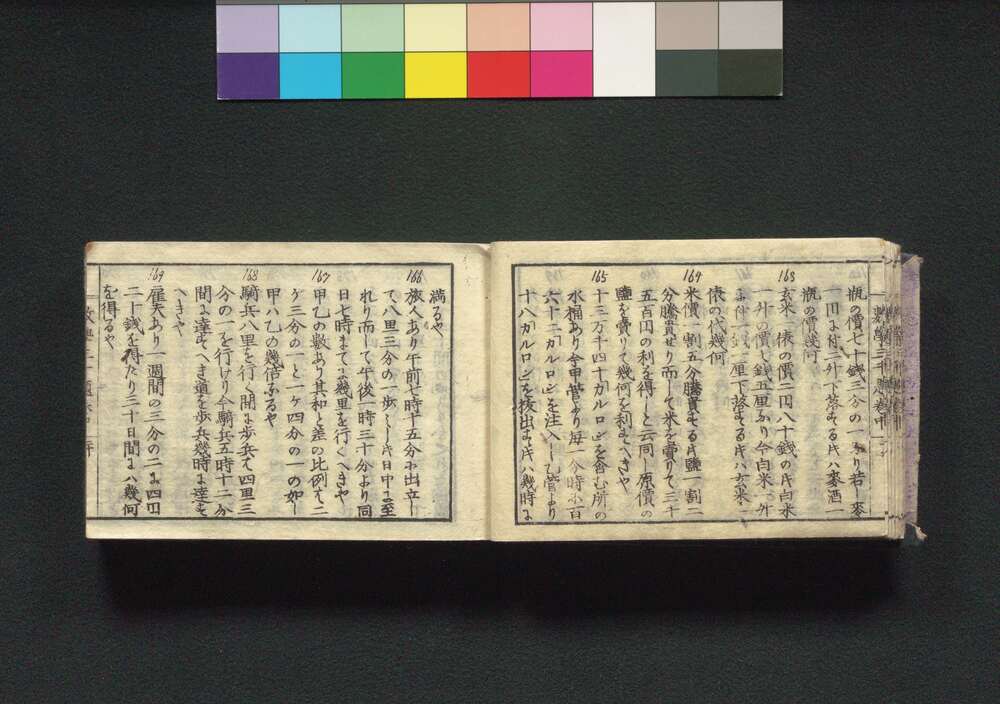 瓶の價七十錢三分の一なり若し麥
一円に付二升下落する片ハ麥酒一
瓶の價幾何
163
玄米一俵の價二円八十錢の片白米
一升の價七錢五厘なり今白米一升
に付一錢一厘下落する片ハ玄米一
俵の代幾何
164
米價一割五分騰貴する片鹽一割二
分騰貴せり而して米を賣りて三千
五百円の利を得しと云同し原價の
鹽を賣りて幾何を利すへきや
165
十三万千四十ガルロンを含む所の
水桶あり今甲管より毎一分時に百
六十二ガルロンを注入し乙管より
十八ガルロンを抜出す片ハ幾時に
満るや
166
旅人あり午前七時十五分に出立し
て八里三分の一歩し片日中に至
れり而して午後一時三十分より同
日七時まてに幾里を行くへきや
167
甲乙の数あり其和と差の比例は二
ケ三分の一と一ケ四分の一の如し
甲ハ乙の幾倍なるや
168
騎兵八里を行く間に歩兵は四里三
分の一を行けり今騎兵五時十二分
間に達すへき道を歩兵幾時に達す
へきや
169
雇夫あり一週間の三分の二に四円
二十錢を得たり三十日間にハ幾何
を得るや